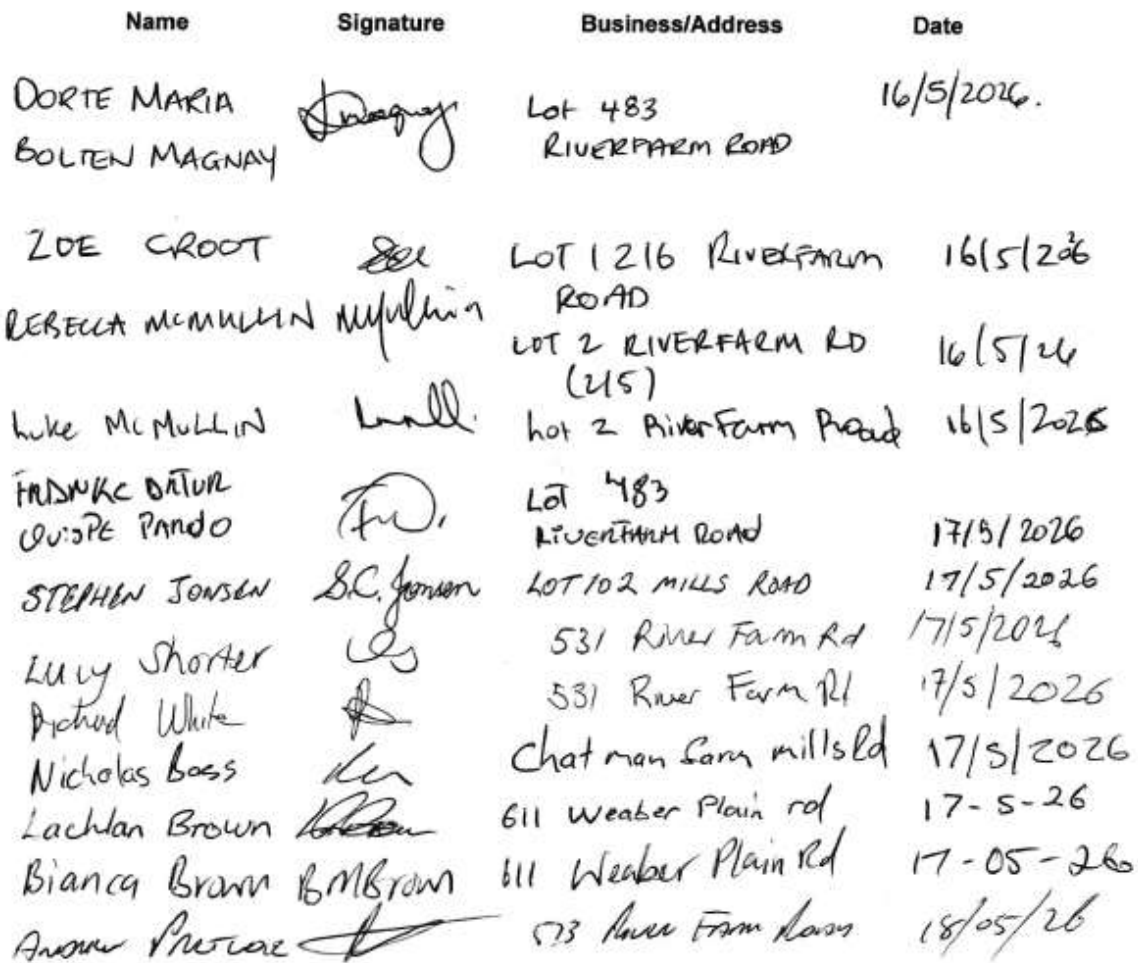 Name Signature Business/Address Date
DORTE MARIA Lot 483 16/5/2026.
BOLTEN MAGNAY RIVERFARM ROAD
ZOE GROOT LOT 1 216 RIVERFARM 16/5/26
ROAD
REBECCA MCMULLIN McMullin LOT 2 RIVERFARM RD 16/5/26
(215)
Luke McMULLIN Lot 2 RiverFarm Road 16/5/2026
LOT 483
QUISPE PANDO RIVERFARM ROAD 17/5/2026
STEPHEN JONSEN S.C. Jonsen LOT 102 MILLS ROAD 17/5/2026
Lucy Shorter 531 River Farm Rd 17/5/2026
Richard White 531 River Farm Rd 17/5/2026
Nicholas Boss Chatman farm mills Rd 17/5/2026
Lachlan Brown 611 Weaber Plain rd 17-5-26
Bianca Brown BMBrown 611 Weaber Plain Rd 17-05-26
Andrew 573 River Farm Road 18/05/26